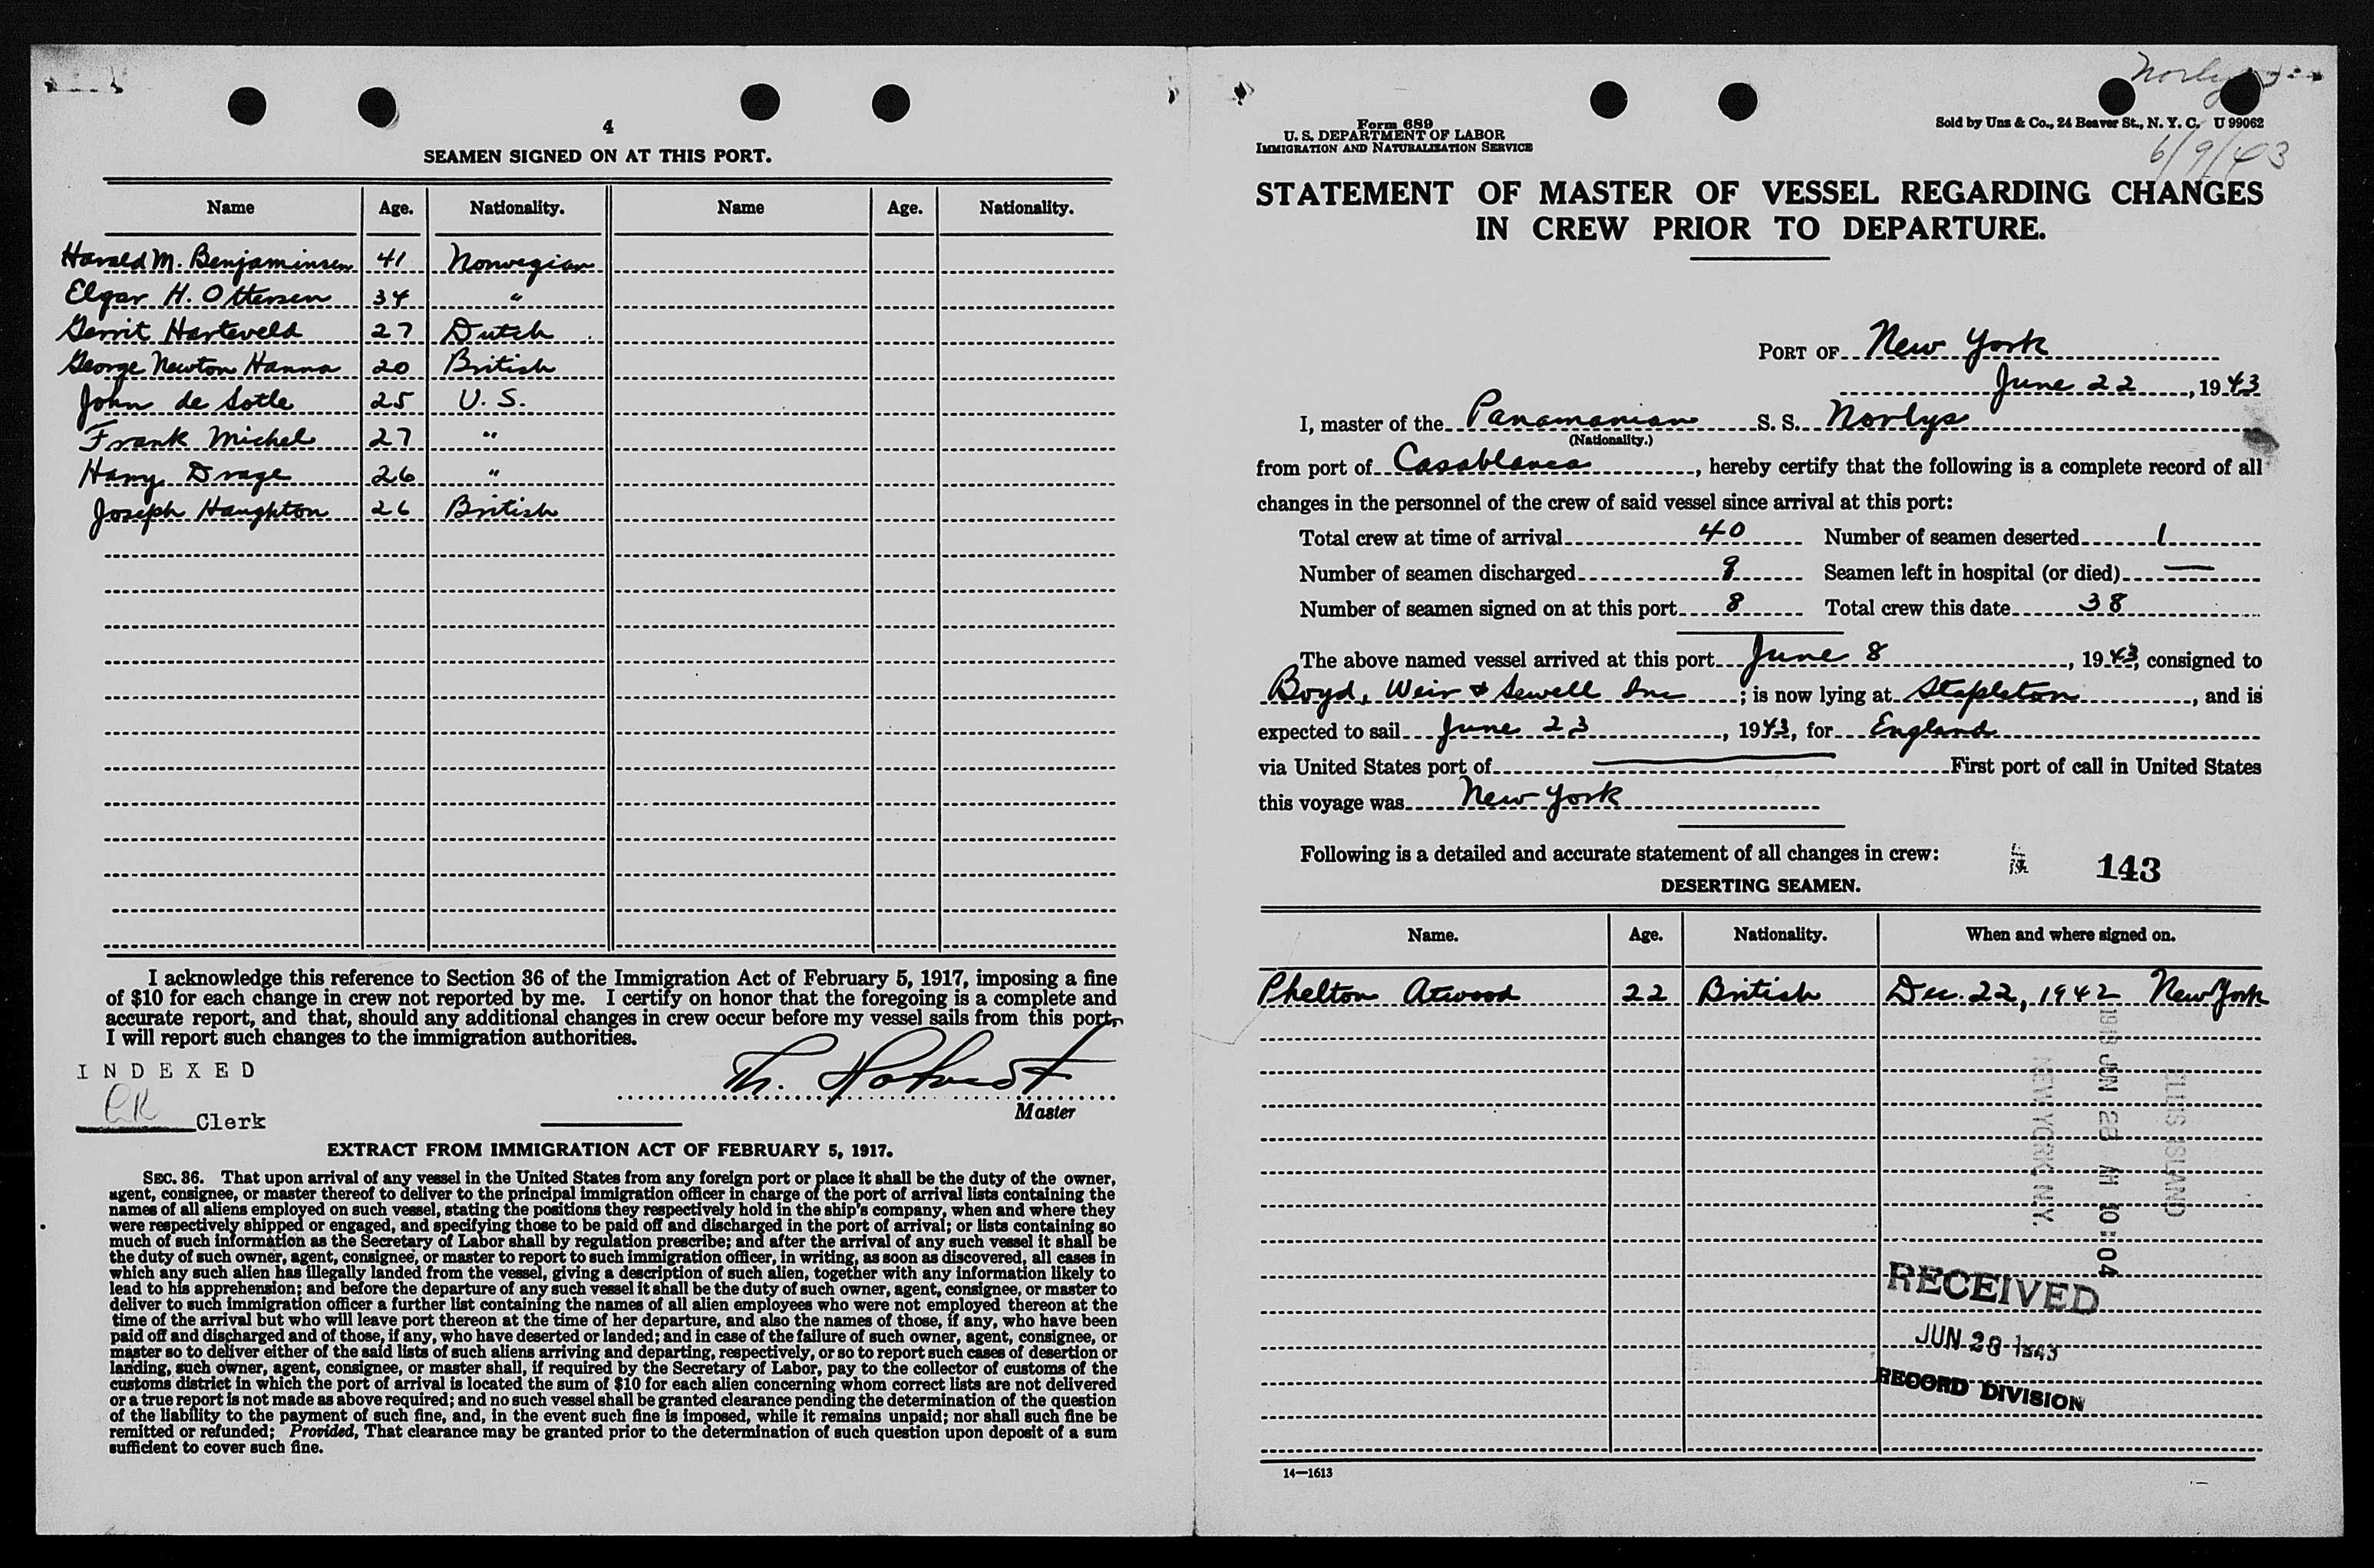 4
SEAMEN SIGNED ON AT THIS PORT.
Name Age. Nationality. Name Age. Nationality.
Harald M. Benjaminsen 41 Norwegian
Elgar H. Ottersen 34 "
Gerrit Harteveld 27 Dutch
George Newton Hanna 20 British
John de Sotle 25 U. S.
Frank Michel 27 "
Harry Drage 26 "
Joseph Haughton 26 British
I acknowledge this reference to Section 36 of the Immigration Act of February 5, 1917, imposing a fine
of $10 for each change in crew not reported by me. I certify on honor that the foregoing is a complete and
accurate report, and that, should any additional changes in crew occur before my vessel sails from this port,
I will report such changes to the immigration authorities.
INDEXED
Th.
Clerk
Master
EXTRACT FROM IMMIGRATION ACT OF FEBRUARY 5, 1917.
SEC. 36. That upon arrival of any vessel in the United States from any foreign port or place it shall be the duty of the owner,
agent, consignee, or master thereof to deliver to the principal immigration officer in charge of the port of arrival lists containing the
names of all aliens employed on such vessel, stating the positions they respectively hold in the ship's company, when and where they
were respectively shipped or engaged, and specifying those to be paid off and discharged in the port of arrival; or lists containing so
much of such information as the Secretary of Labor shall by regulation prescribe; and after the arrival of any such vessel it shall be
the duty of such owner, agent, consignee, or master to report to such immigration officer, in writing, as soon as discovered, all cases in
which any such alien has illegally landed from the vessel, giving a description of such alien, together with any information likely to
lead to his apprehension; and before the departure of any such vessel it shall be the duty of such owner, agent, consignee, or master to
deliver to such immigration officer a further list containing the names of all alien employees who were not employed thereon at the
time of the arrival but who will leave port thereon at the time of her departure, and also the names of those, if any, who have been
paid off and discharged and of those, if any, who have deserted or landed; and in case of the failure of such owner, agent, consignee, or
master so to deliver either of the said lists of such aliens arriving and departing, respectively, or so to report such cases of desertion or
landing, such owner, agent, consignee, or master shall, if required by the Secretary of Labor, pay to the collector of customs of the
customs district in which the port of arrival is located the sum of $10 for each alien concerning whom correct lists are not delivered
or a true report is not made as above required; and no such vessel shall be granted clearance pending the determination of the question
of the liability to the payment of such fine, and, in the event such fine is imposed, while it remains unpaid; nor shall such fine be
remitted or refunded; Provided, That clearance may be granted prior to the determination of such question upon deposit of a sum
sufficient to cover such fine.
Norlys
Form 689
U. S. DEPARTMENT OF LABOR
IMMIGRATION AND NATURALIZATION SERVICE
Sold by Unz & Co., 24 Beaver St., N. Y. C. U 99062
6/9/43
STATEMENT OF MASTER OF VESSEL REGARDING CHANGES
IN CREW PRIOR TO DEPARTURE.
PORT OF New York
June 22, 1943
I, master of the Panamanian S. S. Norlys
(Nationality.)
from port of Casablanca, hereby certify that the following is a complete record of all
changes in the personnel of the crew of said vessel since arrival at this port:
Total crew at time of arrival 40 Number of seamen deserted 1
Number of seamen discharged 9 Seamen left in hospital (or died) —
Number of seamen signed on at this port 8 Total crew this date 38
The above named vessel arrived at this port June 8, 1943, consigned to
Boyd, Weir & Sewell Inc; is now lying at Stapleton, and is
expected to sail June 23, 1943, for England
via United States port of — First port of call in United States
this voyage was New York
Following is a detailed and accurate statement of all changes in crew:
143
DESERTING SEAMEN.
Name. Age. Nationality. When and where signed on.
Phelton Atwood 22 British Dec. 22, 1942 New York
ELLIS ISLAND
1943 JUN 28 AM 10:04
NEW YORK N.Y.
RECEIVED
JUN 28 1943
RECORD DIVISION
14—1613